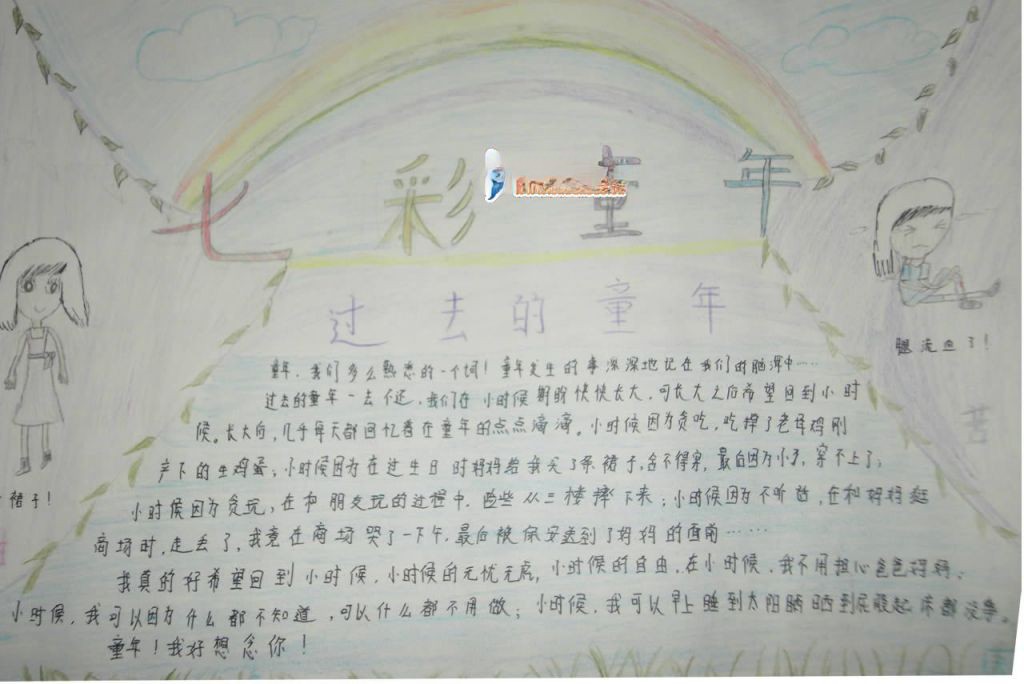 七彩童年
过去的童年
童年，我们多么熟悉的一个词！童年发生的事深深地记在我们的脑海中……
过去的童年一去不还，我们在小时候期盼快快长大，可长大之后希望回到小时
候。长大后，几乎每天都回忆着在童年的点点滴滴。小时候因为贪吃，吃掉了老母鸡刚
产下的生鸡蛋；小时候因为在过生日时妈妈给我买了条裙子，舍不得穿，最后因为小了，穿不上了；
小时候因为贪玩，在和朋友玩的过程中，险些从三楼摔下来；小时候因为不听话，在和妈妈逛
商场时，走丢了，我竟在商场哭了一下午，最后被保安送到了妈妈的面前……
我真的好希望回到小时候，小时候的无忧无虑，小时候的自由，在小时候，我不用担心爸爸妈妈；
小时候，我可以因为什么都不知道，可以什么都不用做；小时候，我可以早上睡到太阳晒到屁股起床都没事。
童年！我好想念你！
腿流血了！
苦
裙子！